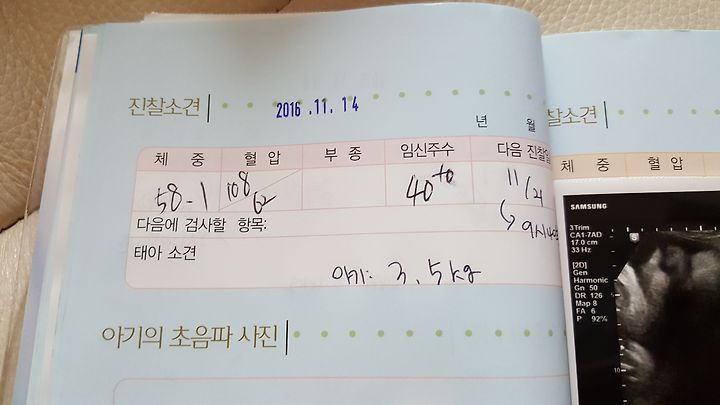 진찰소견
2016 .11. 14
년 월
체 중 혈 압 부 종 임신주수 다음 진찰일
58-1 108/62 40+0 11/21
9시
다음에 검사할 항목:
태아 소견
아기: 3.5kg
아기의 초음파 사진
찰소견
체 중 혈 압
SAMSUNG
3Trim
CA1-7AD
17.0 cm
33 Hz
[2D]
Gen
Harmonic
Gn 50
DR 126
Map 8
FA 6
P 92%
S
5
10